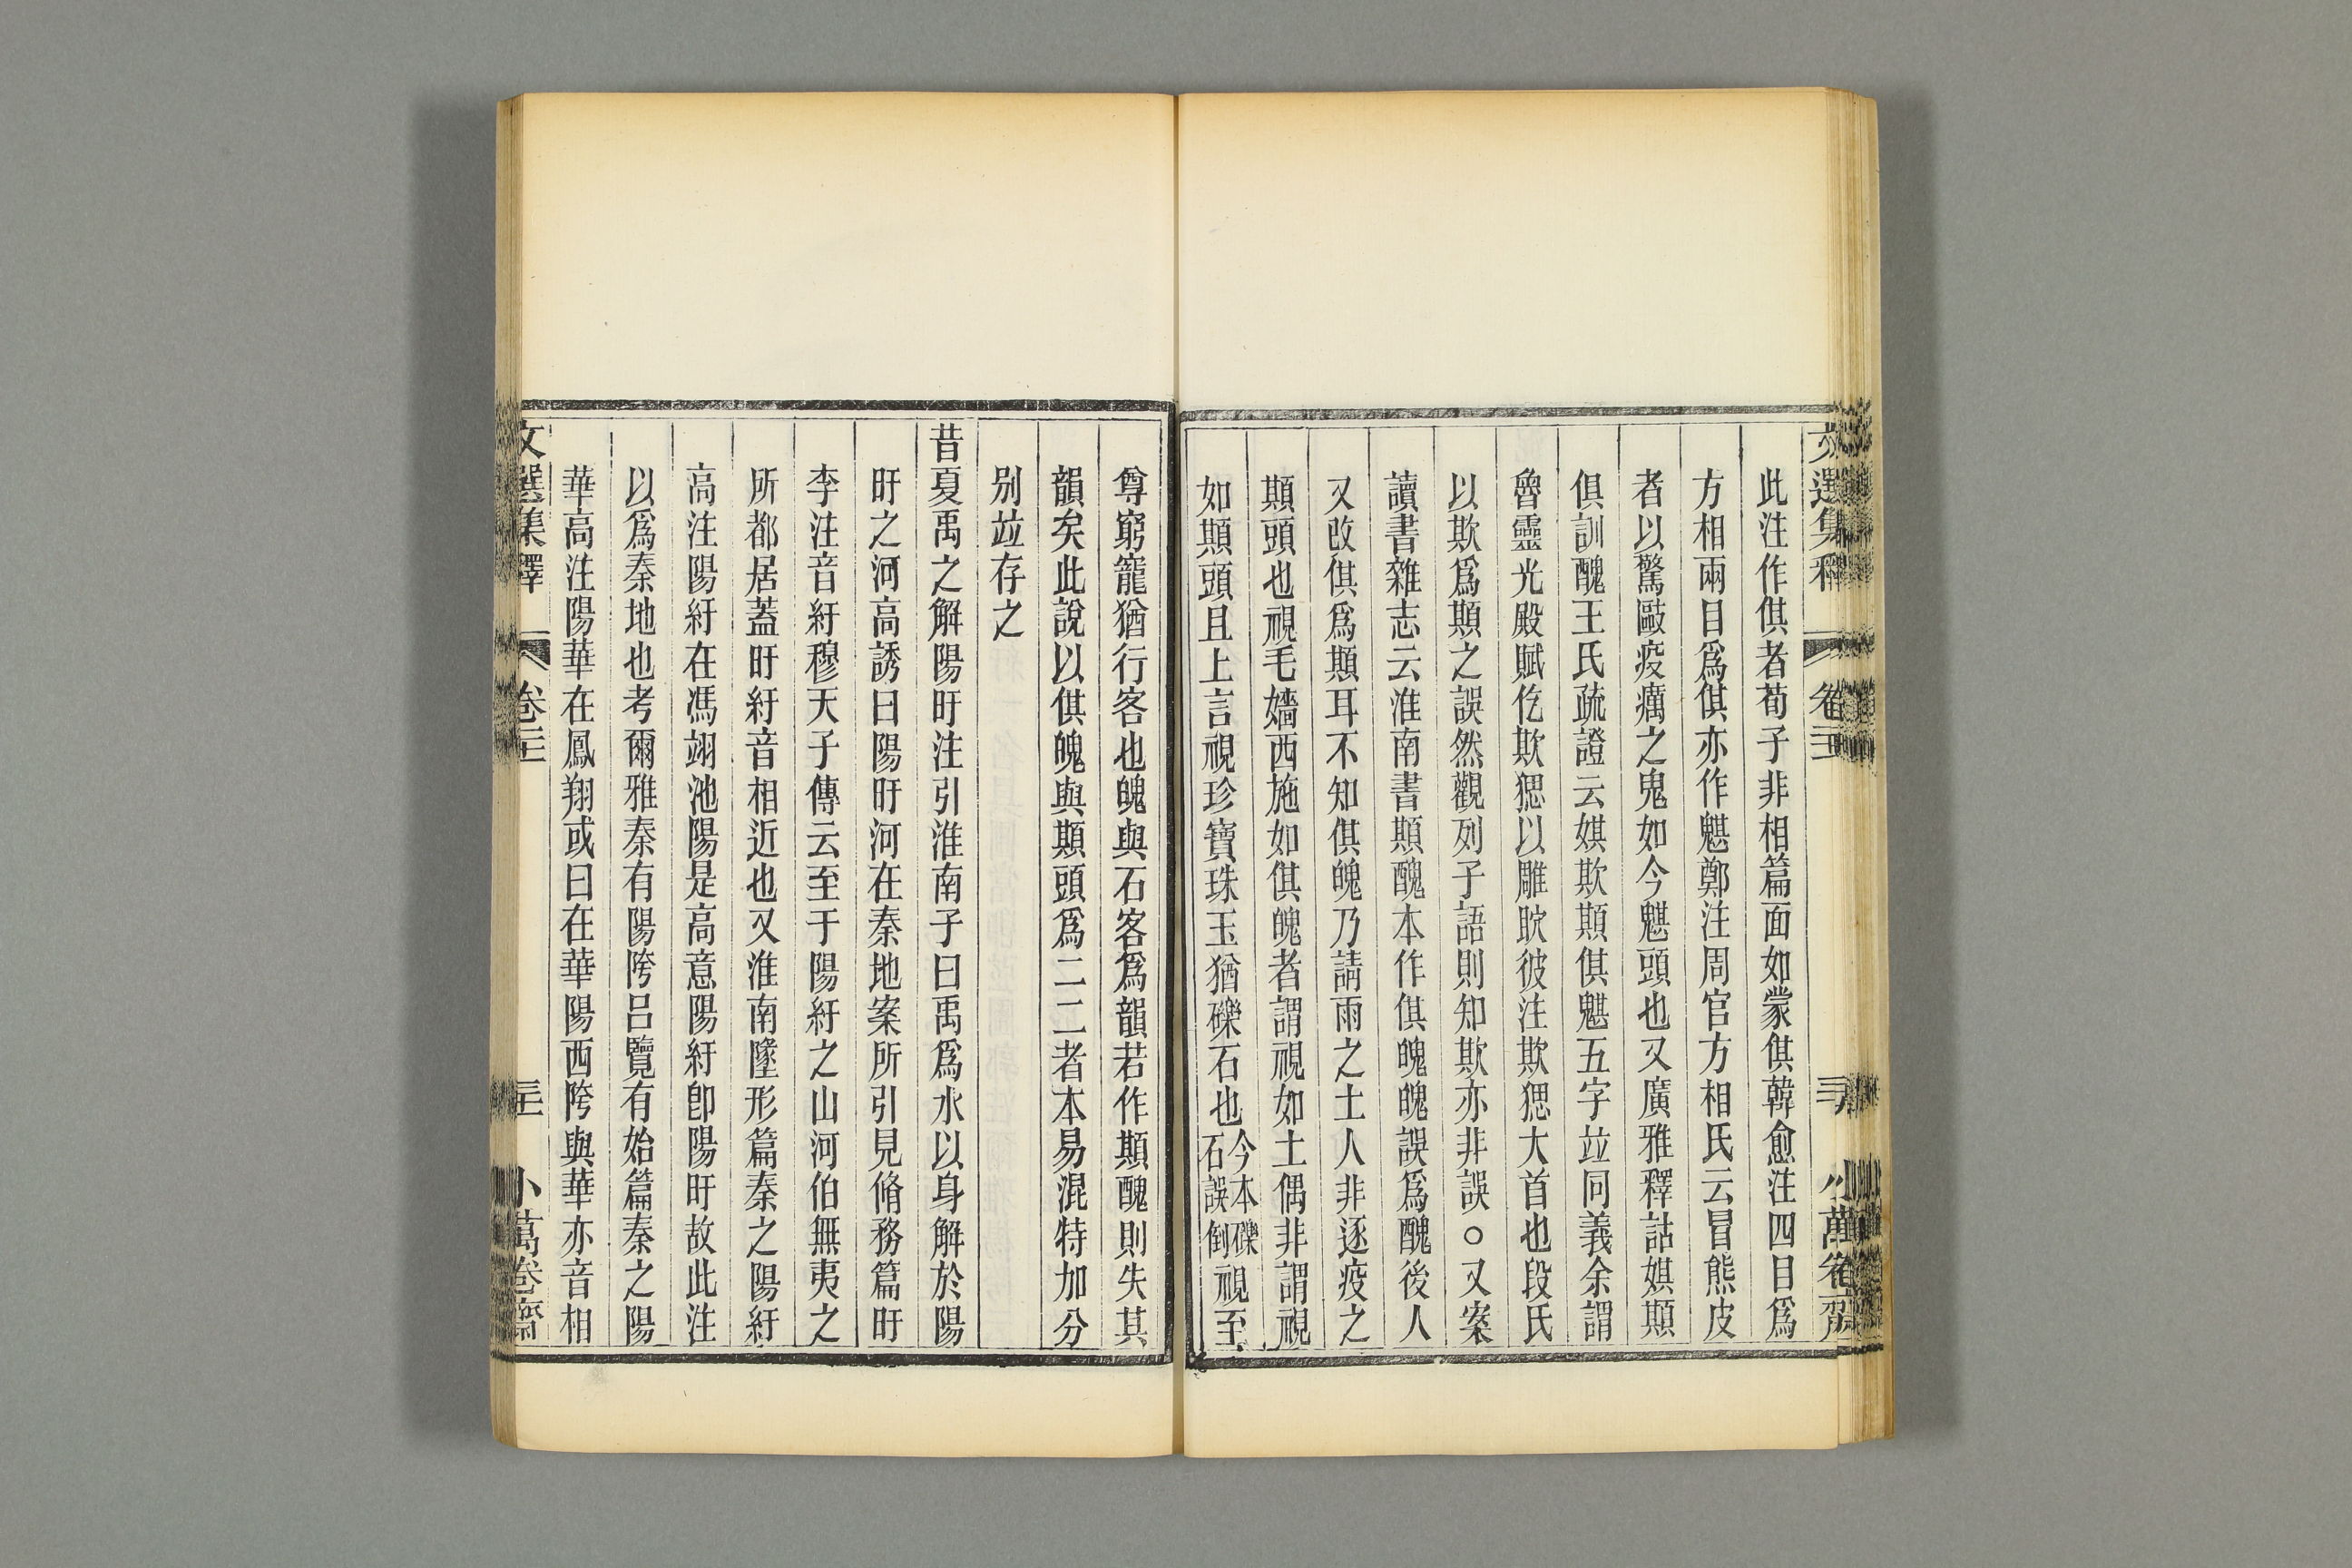 此注作倛者荀子非相篇面如蒙倛韓愈注四目爲
方相兩目爲倛亦作魌鄭注周官方相氏云冒熊皮
者以驚敺疫癘之鬼如今魌頭也又廣雅釋詁娸䫏
倛訓醜王氏疏證云娸欺䫏倛魌五字竝同義余謂
魯靈光殿賦仡欺㥸以雕䀪彼注欺㥸大首也段氏
以欺爲䫏之誤然觀列子語則知欺亦非誤○又案
讀書雜志云淮南書䫏醜本作倛魄魄誤爲醜後人
又改倛爲䫏耳不知倛魄乃請雨之土人非逐疫之
䫏頭也視毛嬙西施如倛魄者謂視如土偶非謂視
如䫏頭且上言視珍寶珠玉猶礫石也今本礫石誤倒視至
尊窮寵猶行客也魄與石客爲韻若作䫏醜則失其
韻矣此說以倛魄與䫏頭爲二二者本易混特加分
别竝存之
昔夏禹之解陽旴注引淮南子曰禹爲水以身解於陽
旴之河高誘曰陽旴河在秦地案所引見脩務篇旴
李注音紆穆天子傳云至于陽紆之山河伯無夷之
所都居蓋旴紆音相近也又淮南墬形篇秦之陽紆
高注陽紆在馮翊池陽是高意陽紆卽陽旴故此注
以爲秦地也考爾雅秦有陽陓呂覽有始篇秦之陽
華高注陽華在鳳翔或曰在華陽西陓與華亦音相
文選集釋
卷二十
小萬卷齋